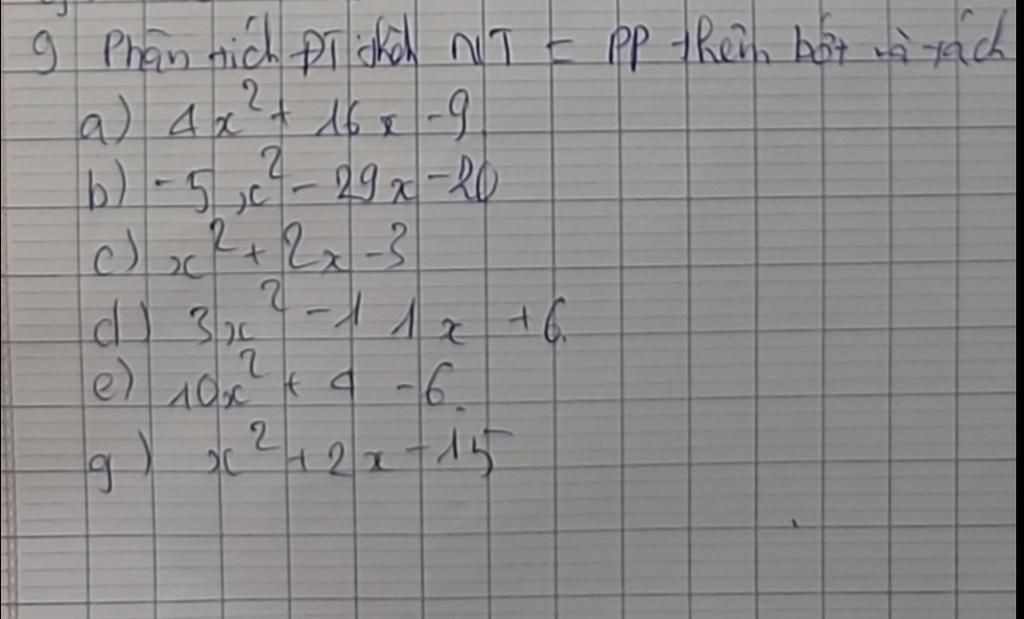 9 Phân tích ĐT thành NT = PP thêm bớt và tách
a) 4x² + 16x - 9
b) -5x² - 29x - 20
c) x² + 2x - 3
d) 3x² - 11x + 6.
e) 10x² + 4 - 6.
g) x² + 2x - 15